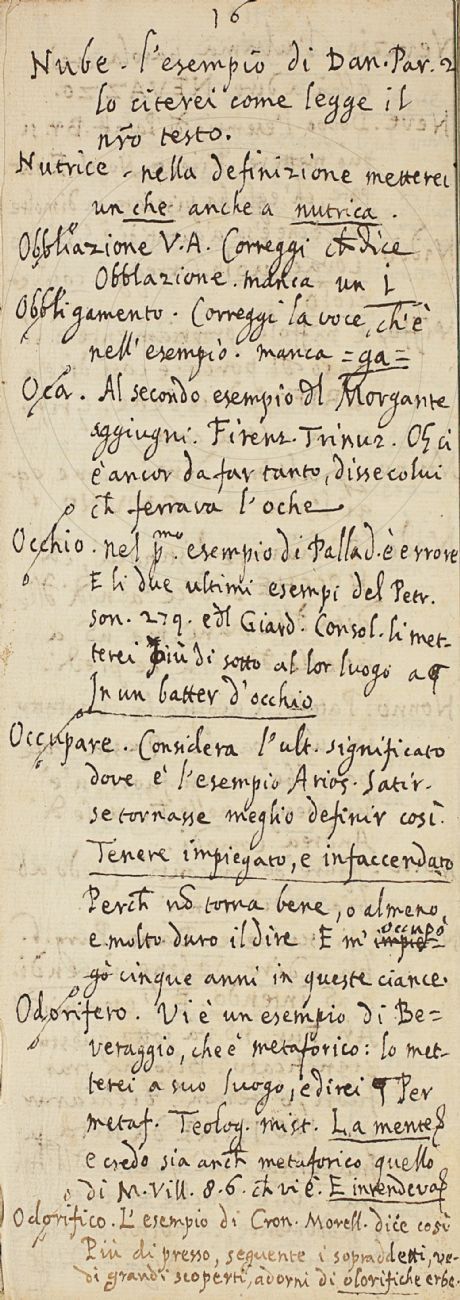 16
Nube. l'esempio di Dan. Par. 2
lo citerei come legge il
nr̃o testo.
Nutrice. nella definizione metterei
un che anche a nutrica.
Obbliazione V.A. Correggi ch̃ dice
Obblazione. manca un i
Obbligamento. Correggi la voce, ch'è
nell'esempio. manca =ga=
Oca. Al secondo esempio dl Morgante
aggiugni. Firenz. Trinuz.
è ancor da far tanto, disse colui
ch̃ ferrava l'oche
Occhio. nel pmo. esempio di Pallad. è errore
E li due ultimi esempi del Petr.
son. 279. e dl Giard. Consol. li met-
terei più di sotto al lor luogo a ¶
In un batter d'occhio
Occupare. Considera l'ult. significato
dove è l'esempio Arios. Satir.
se tornasse meglio definir così.
Tenere impiegato, e infaccendato
Perch̃ nõ torna bene, o almeno,
e molto duro il dire E m' occupò
impie=
gò cinque anni in queste ciance.
Odorifero. Vi è un esempio di Be=
veraggio, che è metaforico: lo met-
terei a suo luogo, e direi ¶ Per
metaf. Teolog. mist. La mente
e credo sia anch̃ metaforico quello
di M. Vill. 8. 6. ch̃ vi è. E intendeva
Odorifico. L'esempio di Cron. Morell. dice così
Più di presso, seguente i sopraddetti, ve-
di grandi scoperti, adorni di olorifiche erbe.